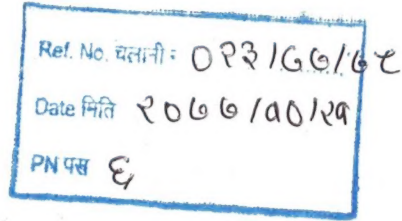 Ref. No. चलानी : ०२३/७७/७८
Date मिति २०७७/१०/२१
PN पस ६